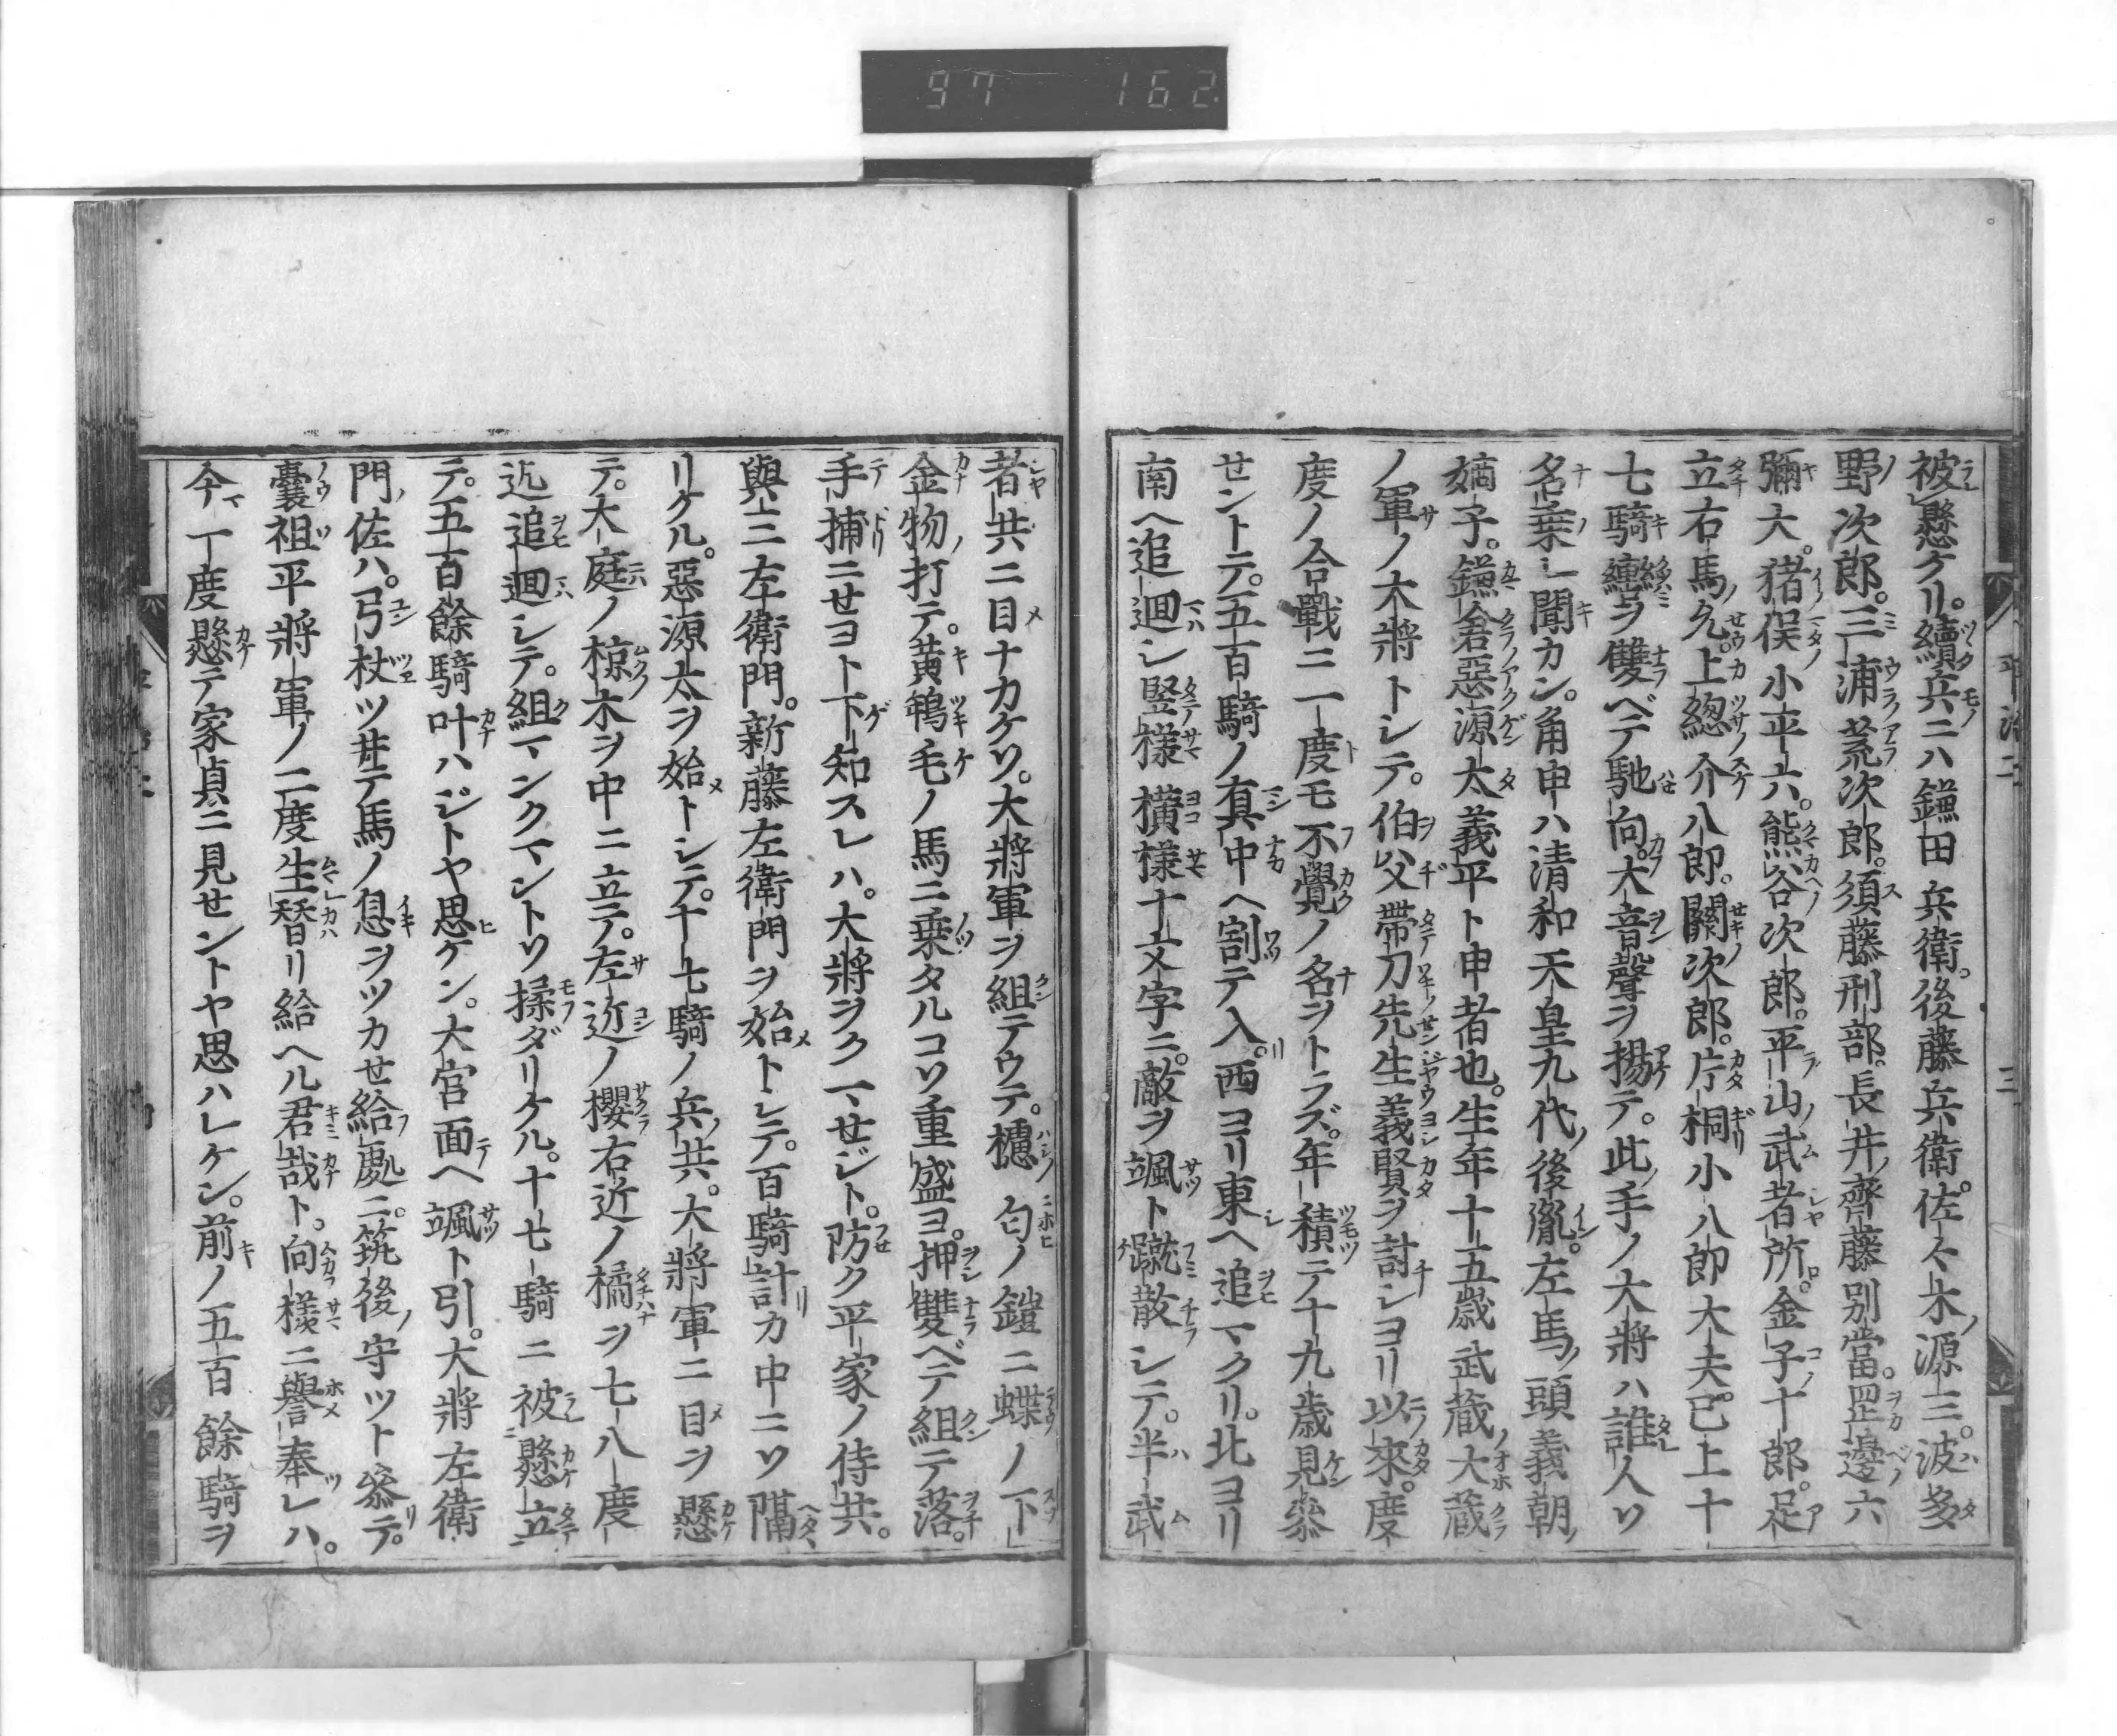 97 162
平治二 三
被懸ケリ。續兵ニハ鎌田兵衛。後藤兵衛。佐々木源三。波多
野次郎。三浦荒次郎。須藤刑部。長井齊藤別當。罡邊六
彌大。猪俣小平六。熊谷次郎。平山武者所。金子十郎。足
立右馬允。上總介八郎。關次郎。片桐小八郎大夫。已上十
七騎轡ヲ雙ベテ馳向。大音聲ヲ揚テ。此手ノ大將ハ誰人ソ
名乗レ聞カン。角申ハ清和天皇九代後胤。左馬頭義朝
嫡子。鎌倉惡源太義平ト申者也。生年十五歳武蔵大蔵
ノ軍ノ大將トシテ。伯父帶刀先生義賢ヲ討シヨリ以來。度
度ノ合戰ニ一度モ不覺ノ名ヲトラズ。年積テ十九歳見參
せントテ。五百騎ノ眞中ヘ割テ入。西ヨリ東ヘ追マクリ。北ヨリ
南ヘ追廻シ竪様横様十文字ニ。敵ヲ颯ト蹴散シテ。半武
者共ニ目ナカケソ。大將軍ヲ組テウテ。櫨匂ノ鎧ニ蝶ノ下
金物打テ。黄鴾毛ノ馬ニ乗タルコソ重盛ヨ。押雙ベテ組テ落。
手捕ニせヨト下知スレハ。大將ヲクマせジト。防ク平家ノ侍共。
與三左衛門。新藤左衛門ヲ始トシテ。百騎計カ中ニソ隔
リケル。惡源太ヲ始トシテ。十七騎ノ兵共。大將軍ニ目ヲ懸
テ。大庭ノ椋木ヲ中ニ立テ。左近ノ櫻右近ノ橘ヲ七八度
迯追廻シテ。組マンクマントソ揉ダリケル。十七騎ニ被懸立
テ。五百餘騎叶ハジトヤ思ケン。大宮面ヘ颯ト引。大將左衛
門佐ハ。弓杖ツ井テ馬ノ息ヲツカせ給處ニ。筑後守ツト參テ。
曩祖平將軍ノ二度生替リ給ヘル君哉ト。向様ニ譽奉レハ。
今一度懸テ家貞ニ見せントヤ思ハレケン。前ノ五百餘騎ヲ